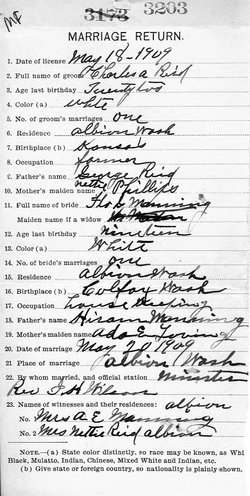 MF 3173 3203
MARRIAGE RETURN.
1. Date of license May 18-1909
2. Full name of groom Charles A Reid
3. Age last birthday Twenty two
4. Color (a) White
5. No. of groom's marriages one
6. Residence Albion Wash
7. Birthplace (b) Kansas
8. Occupation farmer
9. Father's name George Reid
10. Mother's maiden name Nettie Phillips
11. Full name of bride Flo L Manning
Maiden name if a widow
12. Age last birthday nineteen
13. Color (a) White
14. No. of bride's marriages one
15. Residence Albion Wash
16. Birthplace (b) Colfax Wash
17. Occupation House Keeping
18. Father's name Hiram Manning
19. Mother's maiden name Ada E
20. Date of marriage May 20 1909
21. Place of marriage Albion Wash
22. By whom married, and official station Minister
Rev J. H. Wilson
23. Names of witnesses and their residences: albion
No. 1 Mrs A E Manning
No. 2 Mrs Nettie Reid albion
NOTE.—(a) State color distinctly, so race may be known, as Whi
Black, Mulatto, Indian, Chinese, Mixed White and Indian, etc.
(b) Give state or foreign country, so nationality is plainly shown.